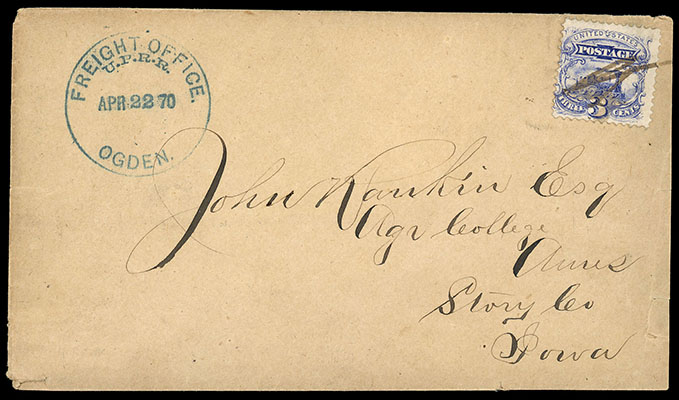 FREIGHT OFFICE.
U.P.R.R.
APR 22 70
OGDEN.
UNITED STATES
POSTAGE
THREE 3 CENTS
John Rankin Esq
Agr College
Ames
Story Co
Iowa